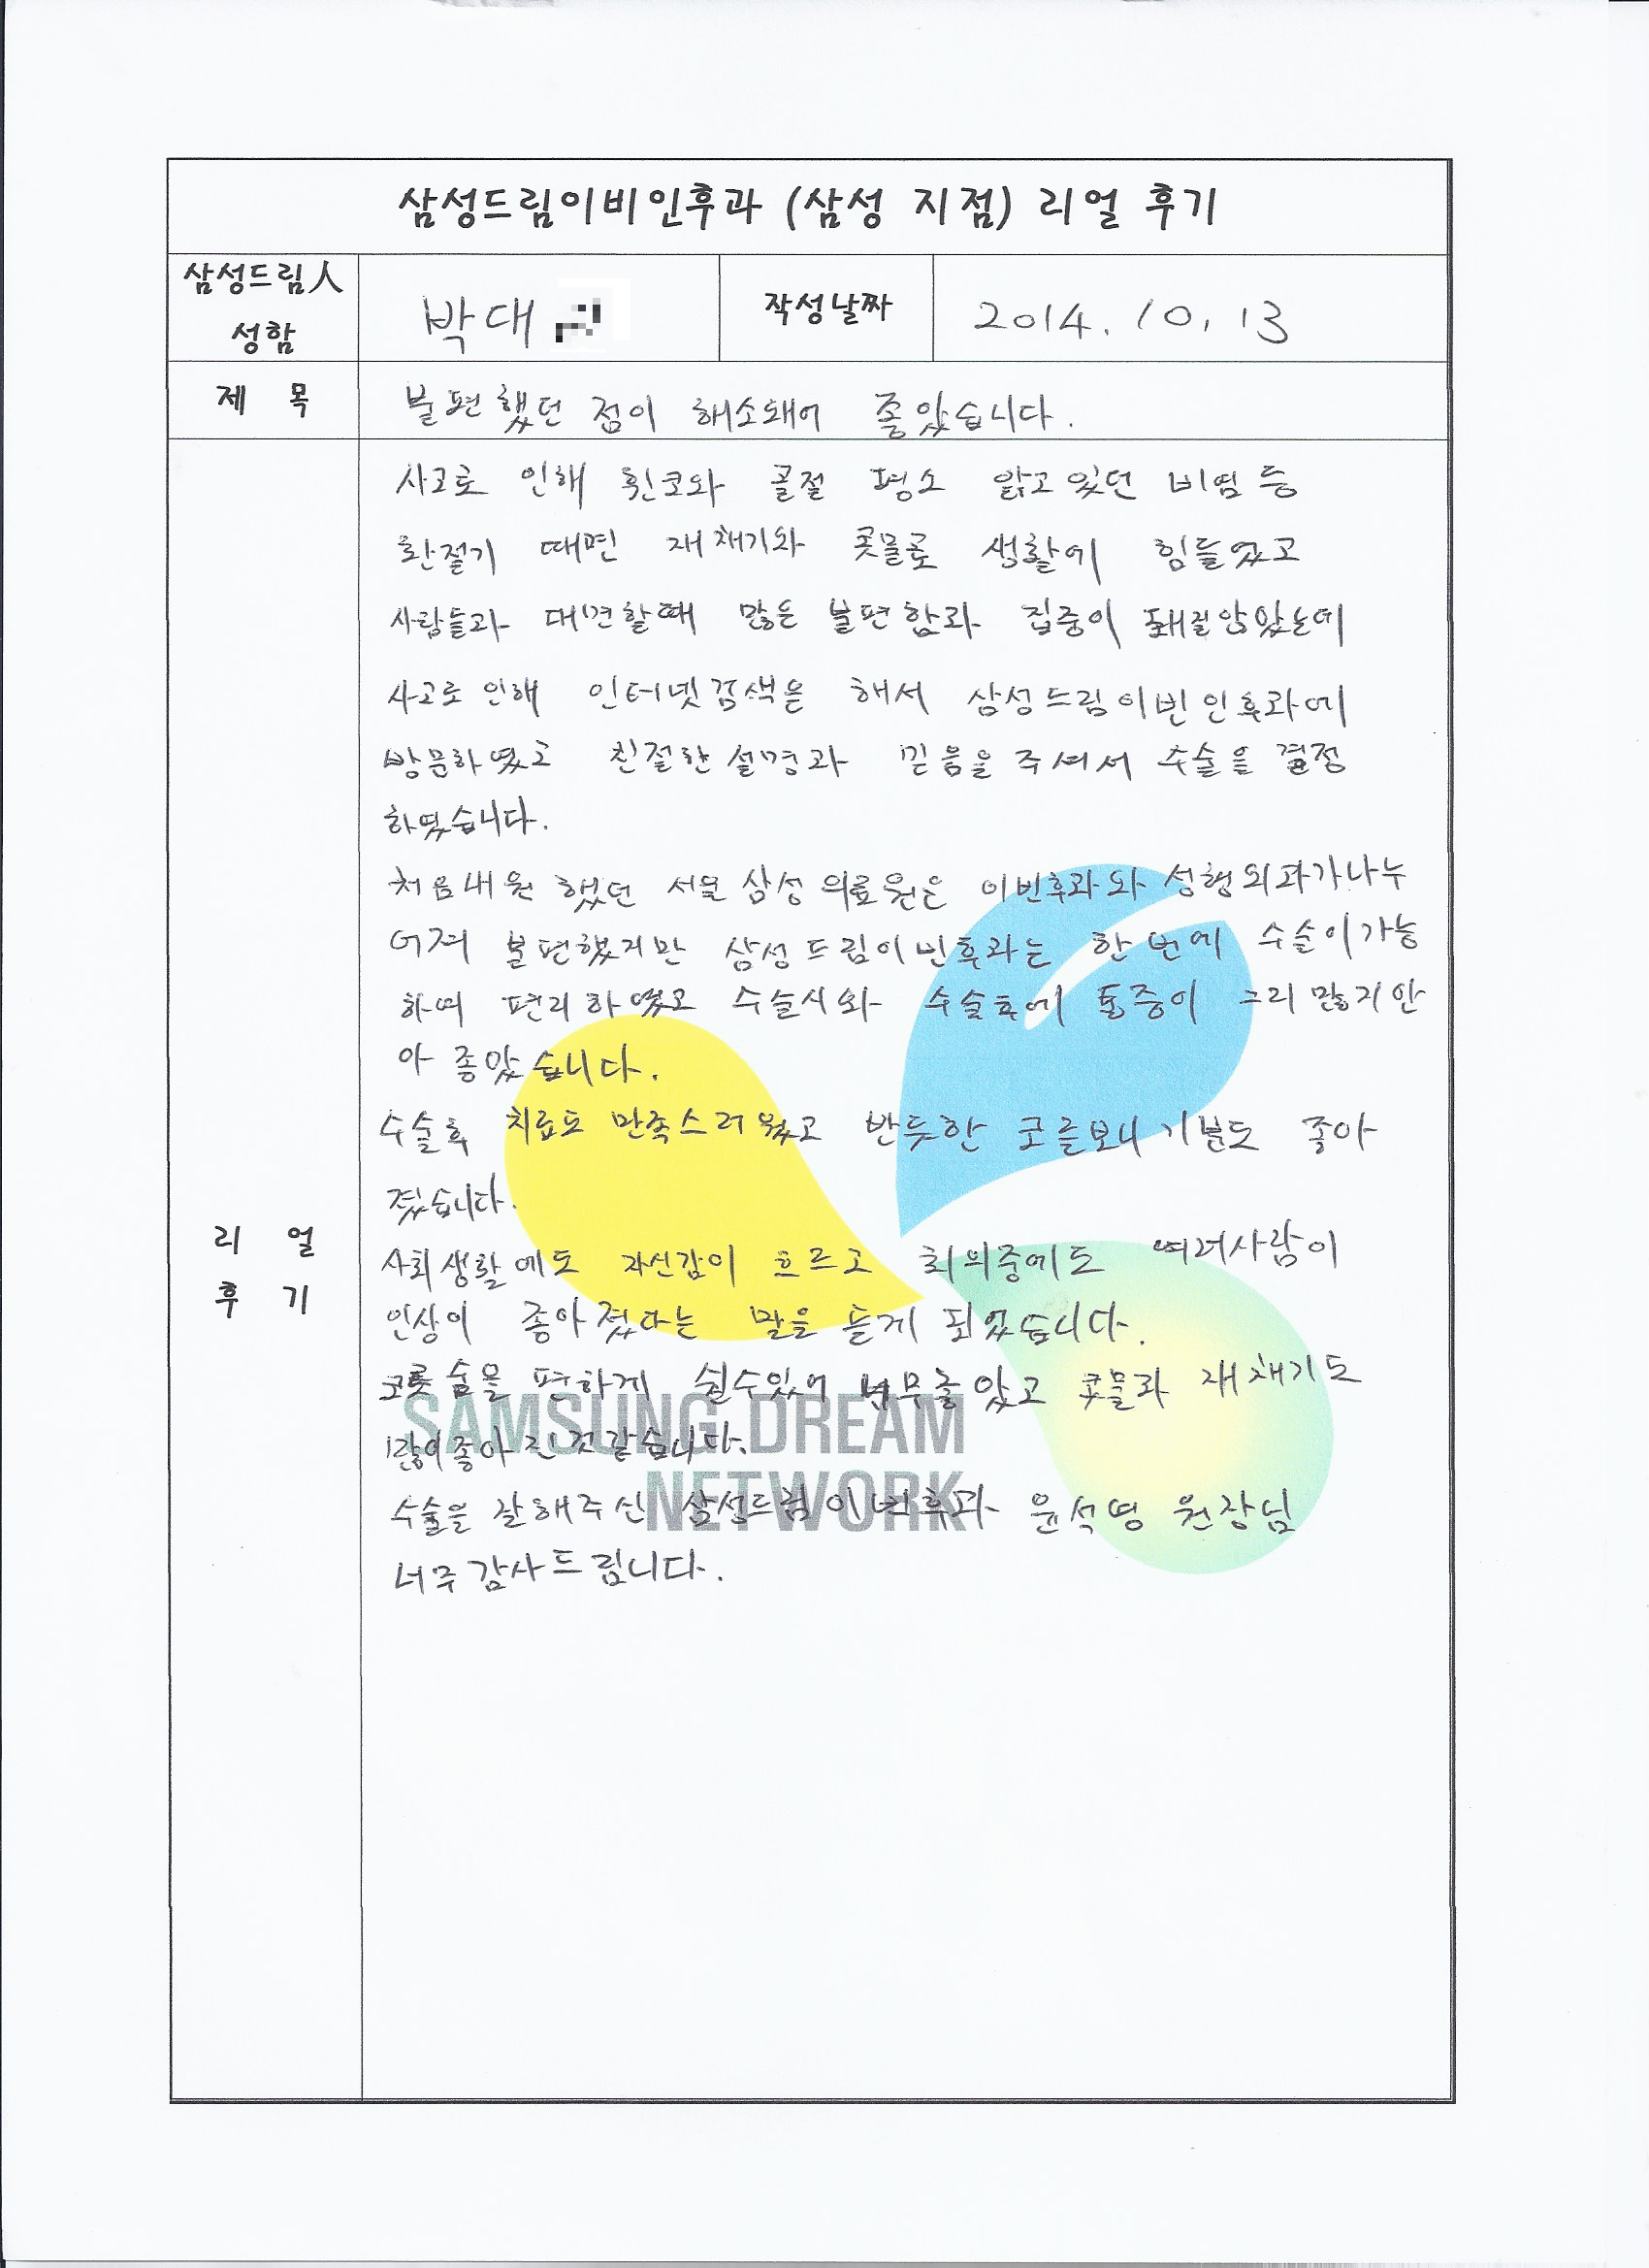 삼성드림이비인후과 (삼성 지점) 리얼 후기
삼성드림人
성함
박대
작성날짜
2014. 10. 13
제 목
불편했던 점이 해소돼어 좋았습니다.
사고로 인해 휜코와 골절 평소 앓고있던 비염 등
환절기 때면 재채기와 콧물로 생활에 힘들었고
사람들과 대면할때 많은 불편함과 집중이 돼질않았는데
사고로 인해 인터넷검색을 해서 삼성드림이빈인후과에
방문하였고 친절한 설명과 믿음을 주셔서 수술을 결정
하였습니다.
처음내원 했던 서울 삼성 의료원은 이빈후과와 성형외과가나누
어져 불편했지만 삼성드림이빈후과는 한번에 수술이가능
하여 편리하였고 수술시와 수술후에 통증이 그리 많지안
아 좋았습니다.
수술후 치료도 만족스러웠고 반듯한 코를보니 기분도 좋아
졌습니다.
사회생활에도 자신감이 흐르고 회의중에도 여러사람이
인상이 좋아졌다는 말을 듣게 되었습니다.
숨을 편하게 쉴수있어 너무좋았고 콧물과 재채기도
많이좋아진것같습니다.
수술을 잘해주신 삼성드림이빈후과 윤석영 원장님
너무감사드립니다.
리 얼
후 기
SAMSUNG DREAM
NETWORK